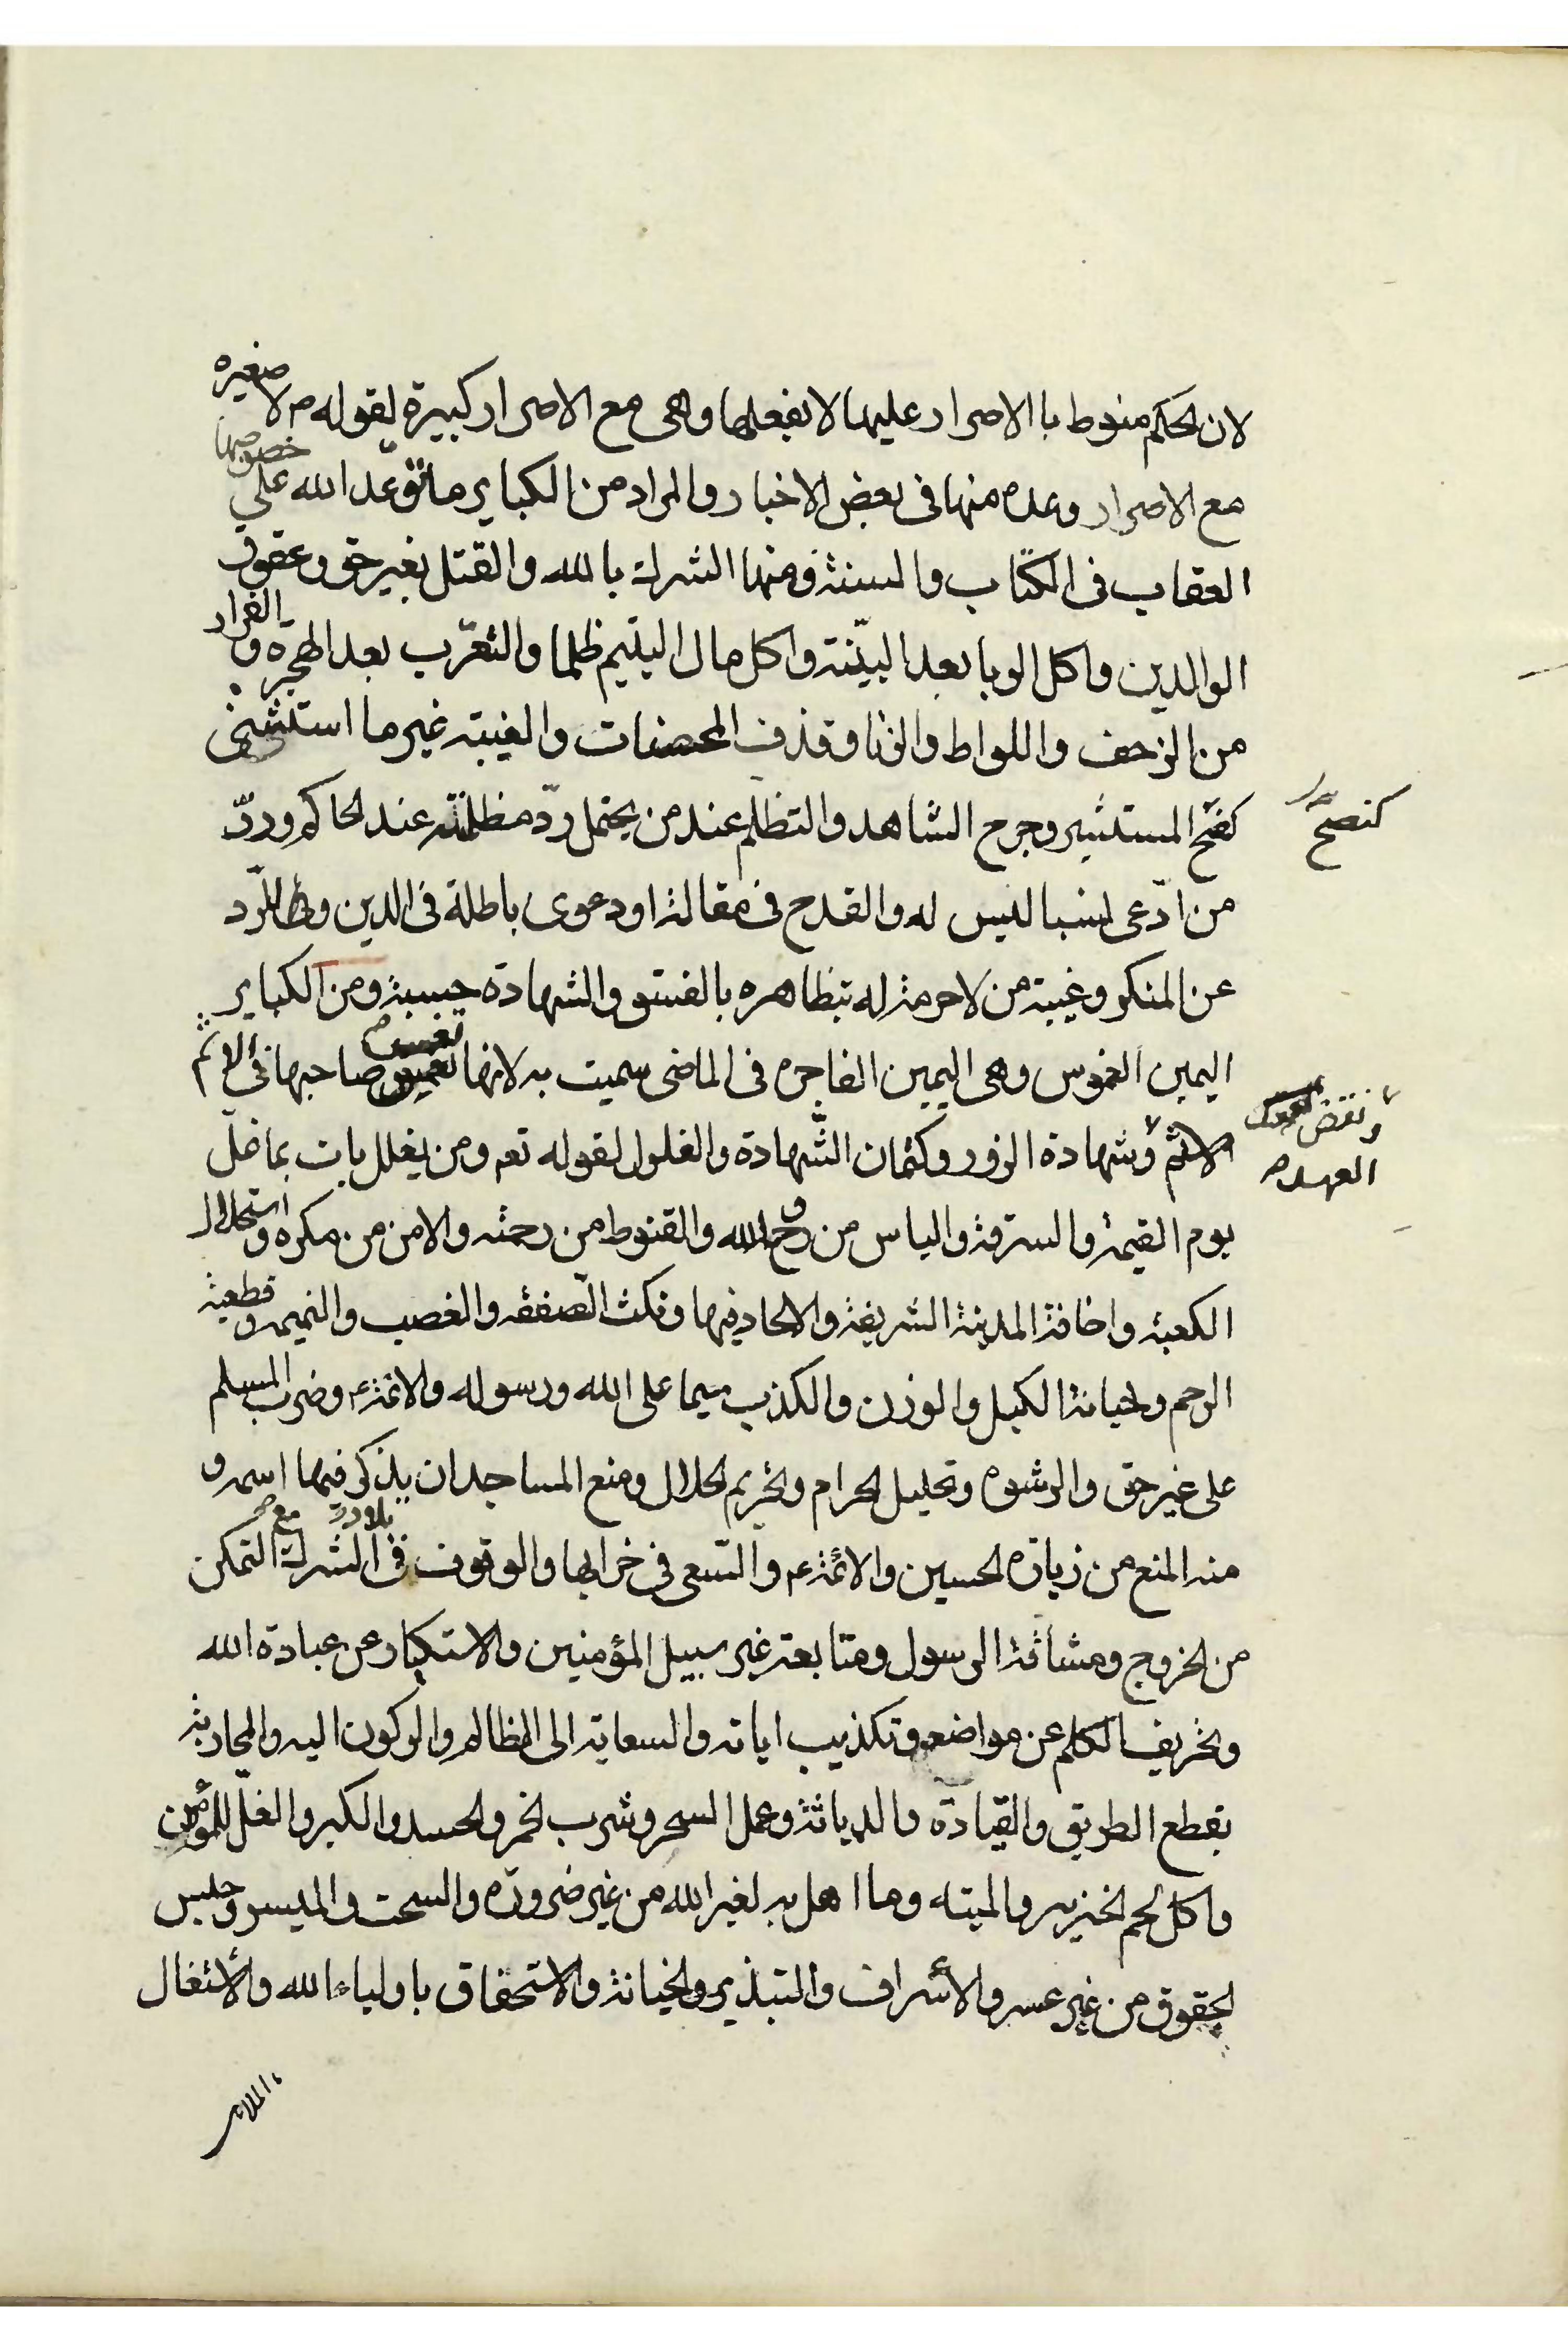 لان الحكم منوط باالاصرار عليها لا بفعلها وهى مع الاصرار كبيرة لقوله ص لا صغيره
مع الاصرار وعده منها فى بعض الاخبار والمراد من الكباير ما توعد الله على خصوصها
العقاب فى الكتاب والسنة ومنها الشرك بالله والقتل بغير حق وعقوق
الوالدين واكل الربا بعد البيّنة واكل مال اليتيم ظلما والتعرّب بعد الهجرة والفرار
من الزحف واللواط والزنا وقذف المحصنات والغيبة غير ما استثنى
كنصح
كفتح المستشير وجرح الشاهد والتظلم عند من يحتمل ردّ مظلمته عند الحاكم وردّ
من ادّعى نسبا ليس له والقدح فى مقالة او دعوى باطلة فى الدين وللرّد
عن المنكر وغيبة من لا حرمة له بتظاهره بالفسق والشهادة حسبة ومن الكباير
اليمين الغموس وهى اليمين الفاجرة فى الماضى سميت به لانها تغمس صاحبها فى الاثم
ونقض
العهد
الاثم وشهادة الزور وكتمان الشّهادة والغلول لقوله تعم ومن يغلل يات بما غلّ
يوم القيمة والسرقة والياس من روح الله والقنوط من رحمته والامن من مكره واستحلال
الكعبة واخافة المدينة الشريفة والالحاد فيها ونكث الصفقه والغصب والنميمه وقطعية
الرحم وخيانة الكيل والوزن والكذب سيما على الله ورسوله والائمة ع وضرب المسلم
على غير حق والرشوه وتحليل الحرام وتحريم الحلال ومنع المساجد ان يذكر فيها اسمه و
منه المنع من زيارة الحسين والائمة ع والسّعى فى خرابها والوقوف فى بلاد الشرك مع التمكن
من الخروج ومشاقة الرسول ومتابعة غير سبيل المؤمنين والاستكبار عن عبادة الله
وتحريف الكلم عن مواضعه وتكذيب اياته والسعاية الى الظالم والركون اليه والمحاربة
بقطع الطريق والقيادة والدياثة وعمل السحر وشرب الخمر والحسد والكبر والغلّ للمؤمن
واكل لحم الخنزير والميته وما اهل به لغير الله من غير ضرورة والسحت والميسر وحبس
الحقوق من غير عسر والأسراف والتبذير والخيانة والاستحقاق باولياء الله والأشغال